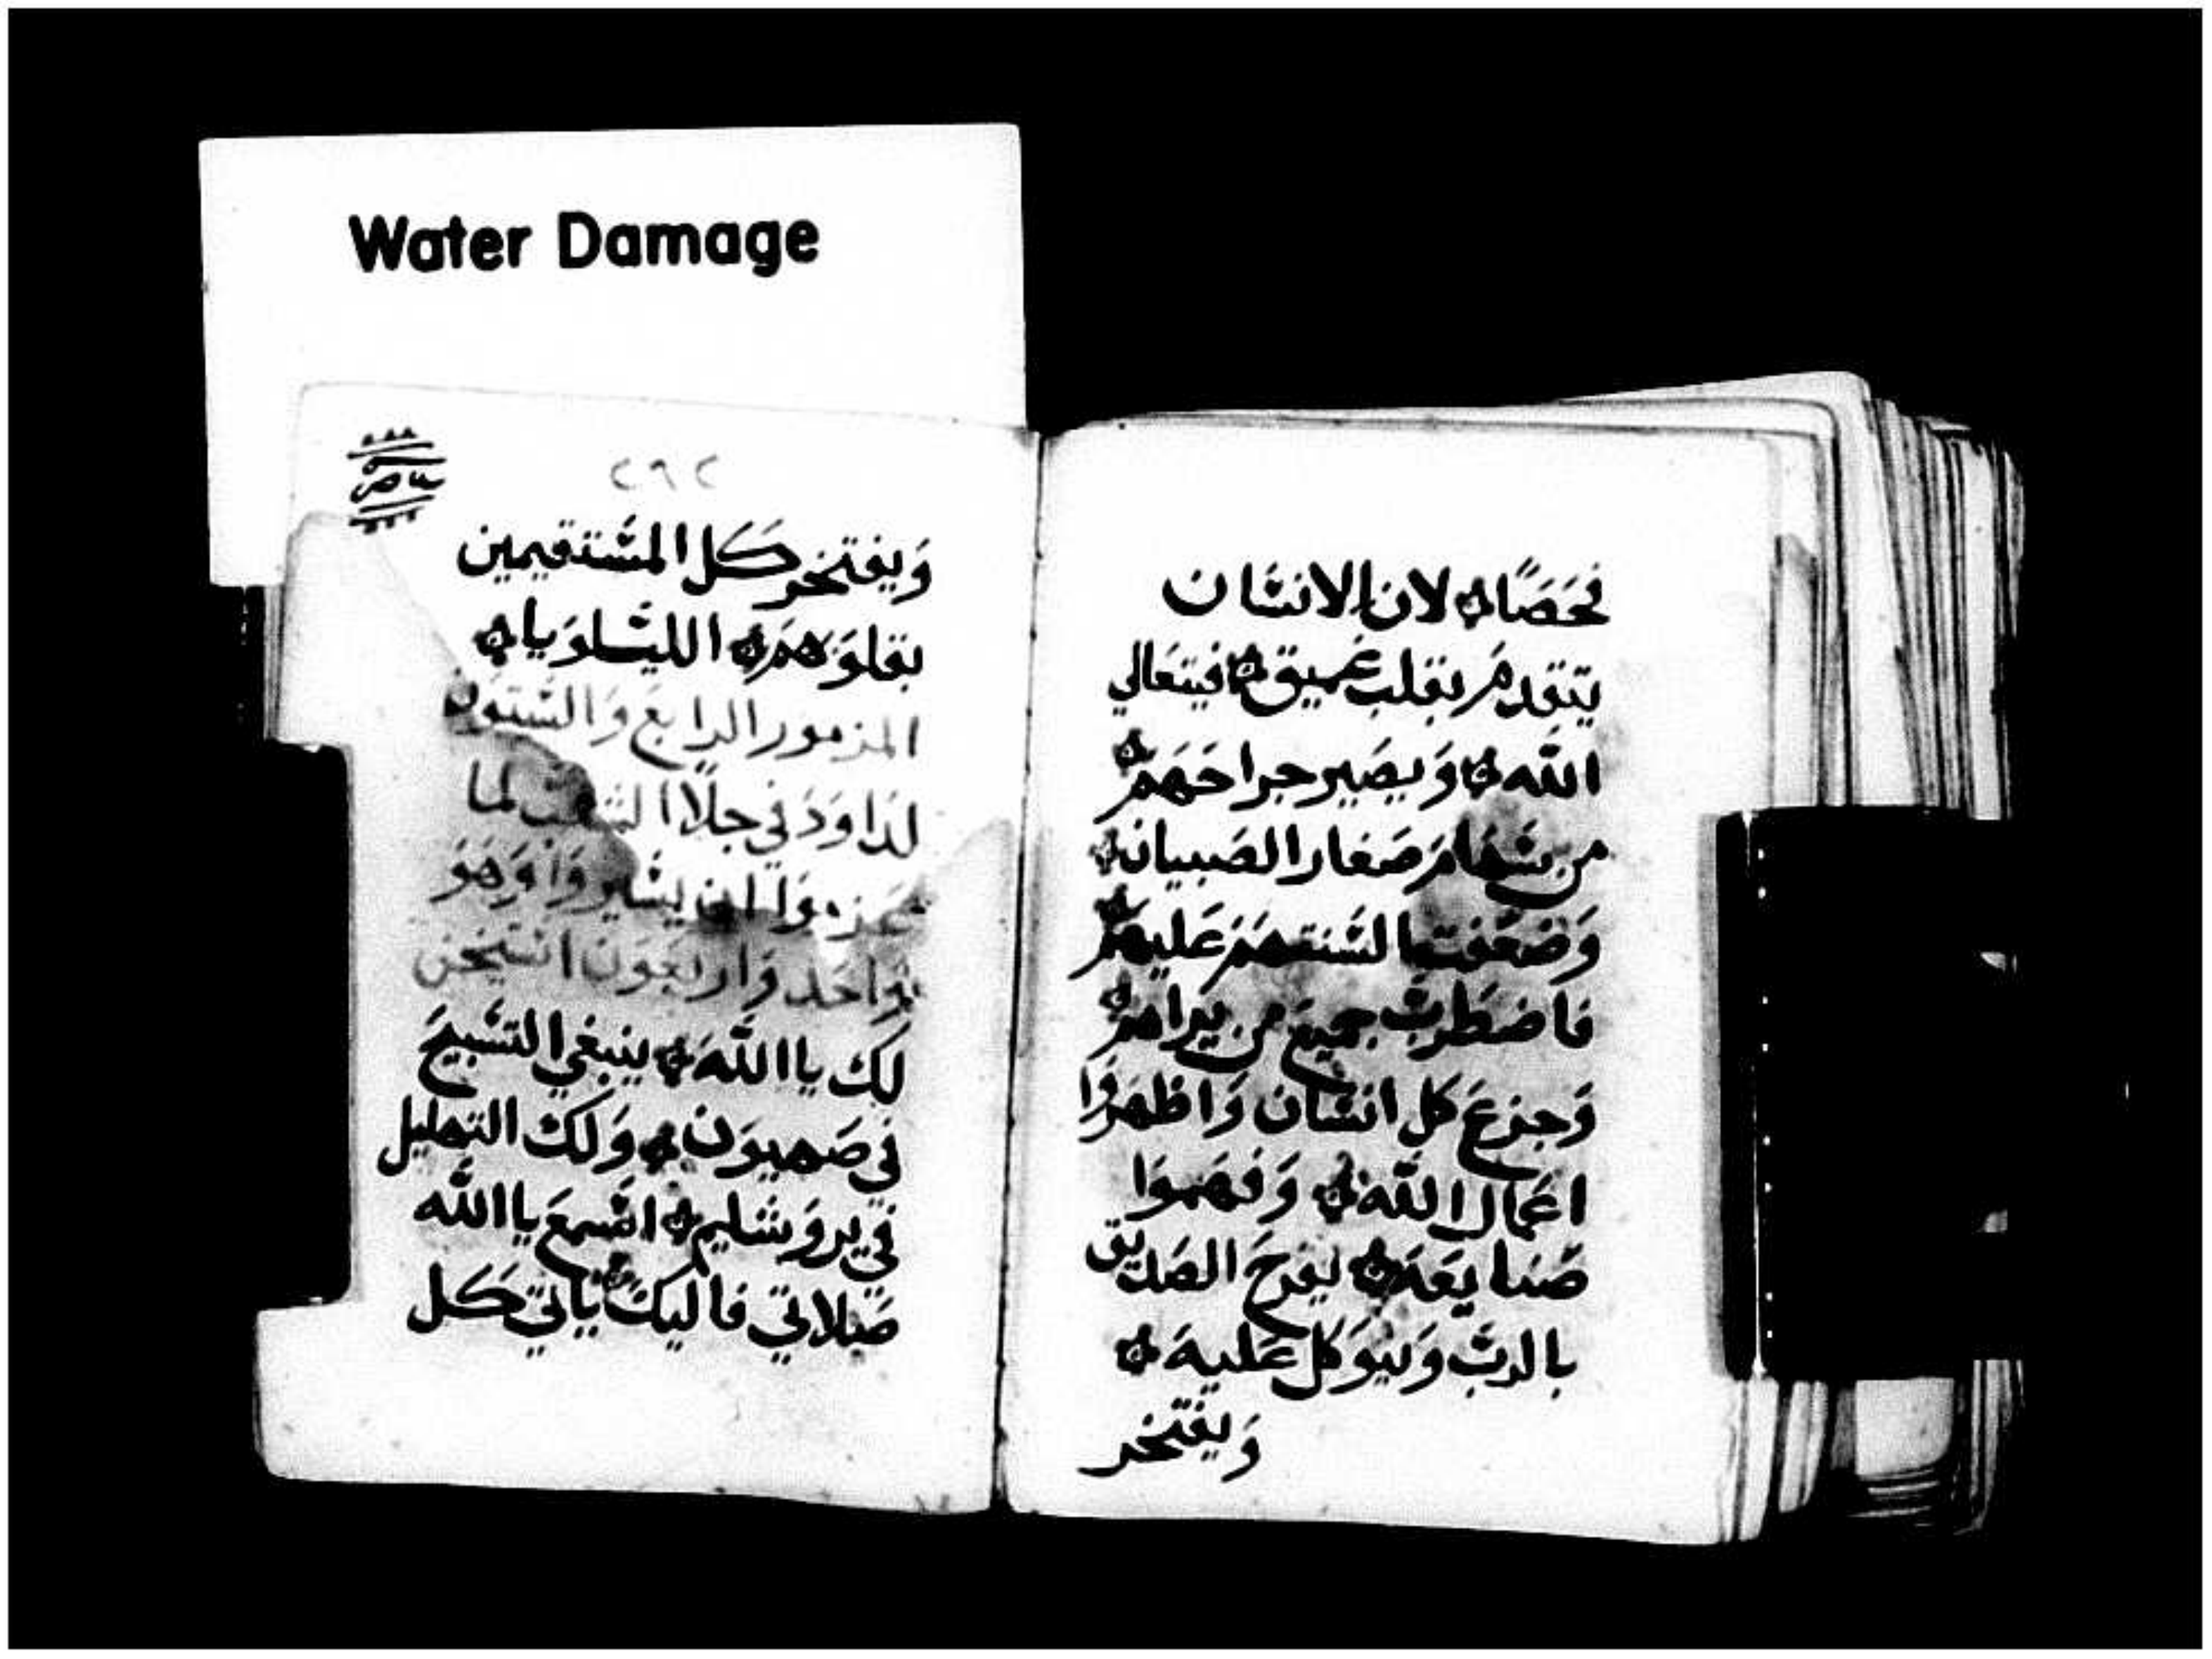 Water Damage
فحصًا لان الانسان
يتقدم بقلب عميق فيتعالي
الله ويصير جراحهم
من سهام صغار الصبيان
وضعفت السنتهم عليهم
فاضطرب جميع من يراهم
وجزع كل انسان واظهروا
اعمال الله وفهموا
صنايعه ليفرح الصديق
بالرب وليوكل عليه
ويفتخر
٢٩٢
ويفتخر كل المستقيمين
بقلوبهم الليلويا
المزمور الرابع والستون
لداود في جلا الشعب لما
عزموا ان يسيروا وهو
واحد واربعون استيخن
لك يا الله ينبغي التسبيح
في صهيون ولك التهليل
في يروشليم اسمع يا الله
صلاتي فاليك ياتي كل